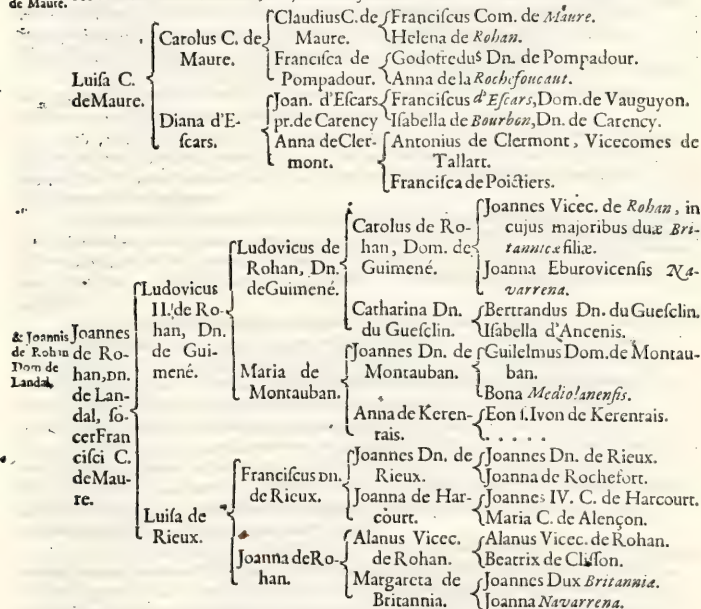 de Maure.
Luisa C.
deMaure.
Carolus C. de
Maure.
Diana d'E-
scars.
ClaudiusC.de
Maure.
Francisca de
Pompadour.
Joan. d'Escars
pr.de Carency
Anna deCler-
mont.
Franciscus Com. de Maure.
Helena de Rohan.
Godofredus Dn. de Pompadour.
Anna de la Rochefoucaut.
Franciscus d'Escars,Dom.de Vauguyon.
Isabella de Bourbon,Dn. de Carency.
Antonius de Clermont, Vicecomes de
Tallart.
Francisca de Poictiers.
& Joannis
de Rohan
Dom de
Landal,
Joannes
de Ro-
han,Dn.
de Lan-
dal, so-
cerFran
cisci C.
deMau-
re.
Ludovicus
II. de Ro-
han, Dn.
de Gui-
mené.
Luisa de
Rieux.
Ludovicus de
Rohan, Dn.
deGuimené.
Maria de
Montauban.
Franciscus Dn.
de Rieux.
Joanna deRo-
han.
Carolus de Ro-
han, Dom. de
Guimené.
Catharina Dn.
du Guesclin.
Joannes Dn. de
Montauban.
Anna de Keren-
rais.
Joannes Dn. de
Rieux.
Joanna de Har-
court.
Alanus Vicec.
de Rohan.
Margareta de
Britannia.
Joannes Vicec. de Rohan, in
cujus majoribus duæ Bri-
tannicæ filiæ.
Joanna Eburovicensis Na-
varrena.
Bertrandus Dn. du Guesclin.
Isabella d'Ancenis.
Guilelmus Dom.de Montau-
ban.
Bona Mediolanensis.
Eon s.Ivon de Kerenrais.
. . . . .
Joannes Dn. de Rieux.
Joanna de Rochefort.
Joannes IV. C. de Harcourt.
Maria C. de Alençon.
Alanus Vicec. de Rohan.
Beatrix de Clisson.
Joannes Dux Britanniæ.
Joanna Navarrena.